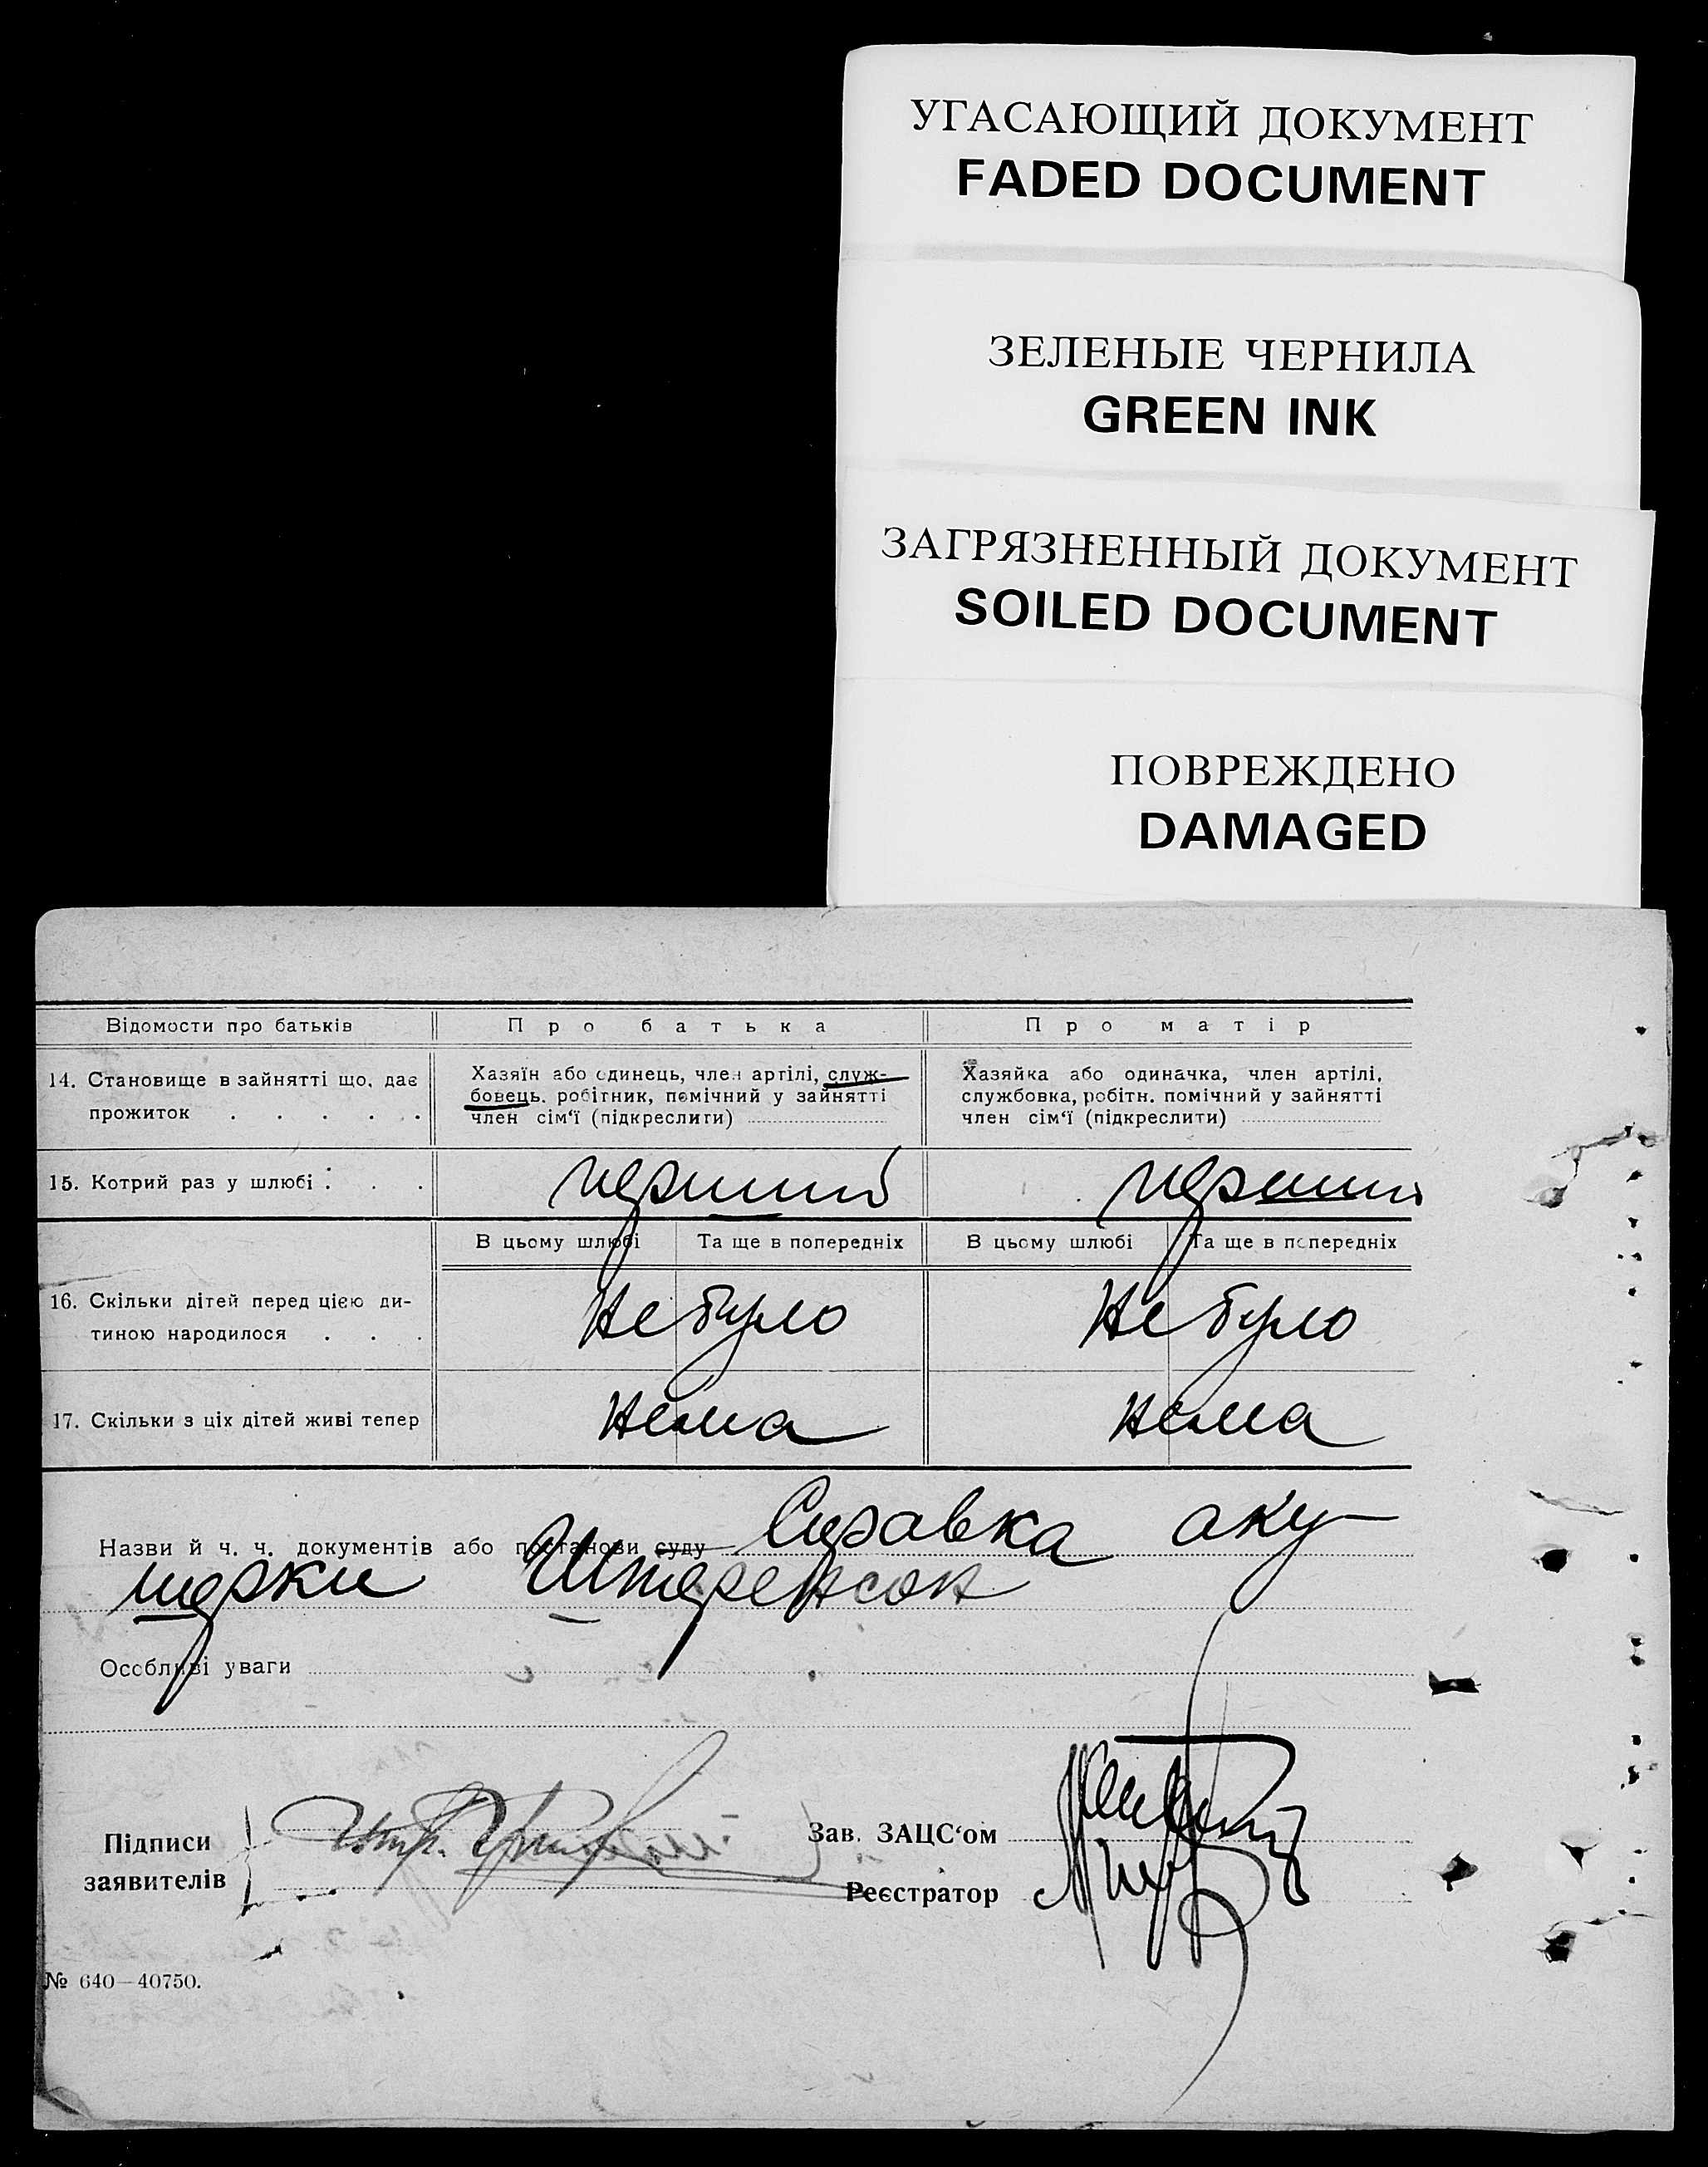 УГАСАЮЩИЙ ДОКУМЕНТ
FADED DOCUMENT
ЗЕЛЕНЫЕ ЧЕРНИЛА
GREEN INK
ЗАГРЯЗНЕННЫЙ ДОКУМЕНТ
SOILED DOCUMENT
ПОВРЕЖДЕНО
DAMAGED
Відомости про батьків Про батька Про матір
14. Становище в зайнятті що, дає прожиток . . . . .
Хазяїн або одинець, член артілі, служ-
бовець. робітник, помічний у зайнятті
член сім‘ї (підкреслити)
Хазяйка або одиначка, член артілі,
службовка, робітн. помічний у зайнятті
член сім‘ї (підкреслити)
15. Котрий раз у шлюбі . . . перший перший
В цьому шлюбі Та ще в попередніх В цьому шлюбі Та ще в попередніх
16. Скільки дітей перед цією ди-
тиною народилося . . . Не було Не було
17. Скільки з ціх дітей живі тепер нема нема
Назви й ч. ч. документів або постанови суду Справка аку-
шерки Штеренсон
Особливі уваги
Підписи
заявителів
Зав. ЗАЦС‘ом
Реєстратор
№ 640—40750.